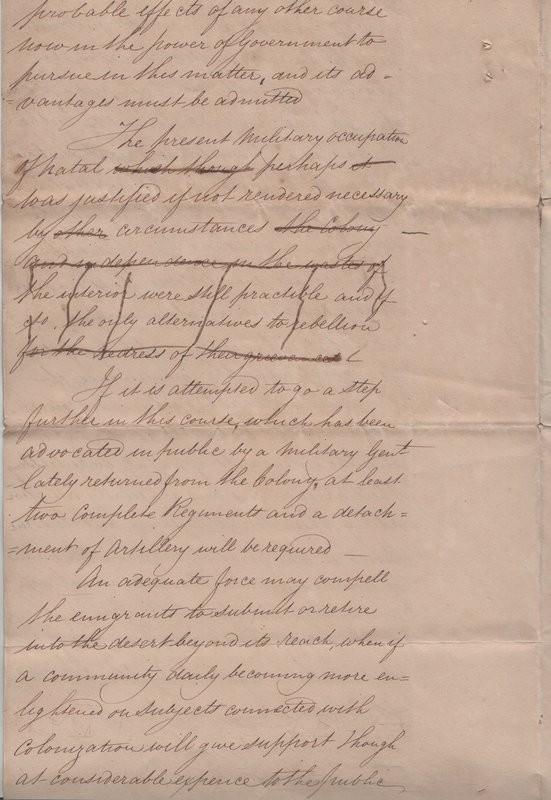 probable effects of any other course
now in the power of Government to
pursue in this matter, and its ad-
=vantages must be admitted
The present Military occupation
of Natal which though perhaps it
was justified if not rendered necessary
by other circumstances the Colony —
and independence in the wastes of
the interior were still practible and if
so. the only alternatives to rebellion
for the redress of their grievances
If it is attempted to go a step
further in this course, which has been
advocated in public by a Military Gent
lately returned from the Colony, at least
two Complete Regiments and a detach=
=ment of Artillery will be required —
An adequate force may compell
the emigrants to submit or retire
into the desert beyond its reach, when if
a community daily becoming more en=
lightened on subjects connected with
Colonization will give support though
at considerable expence to the public